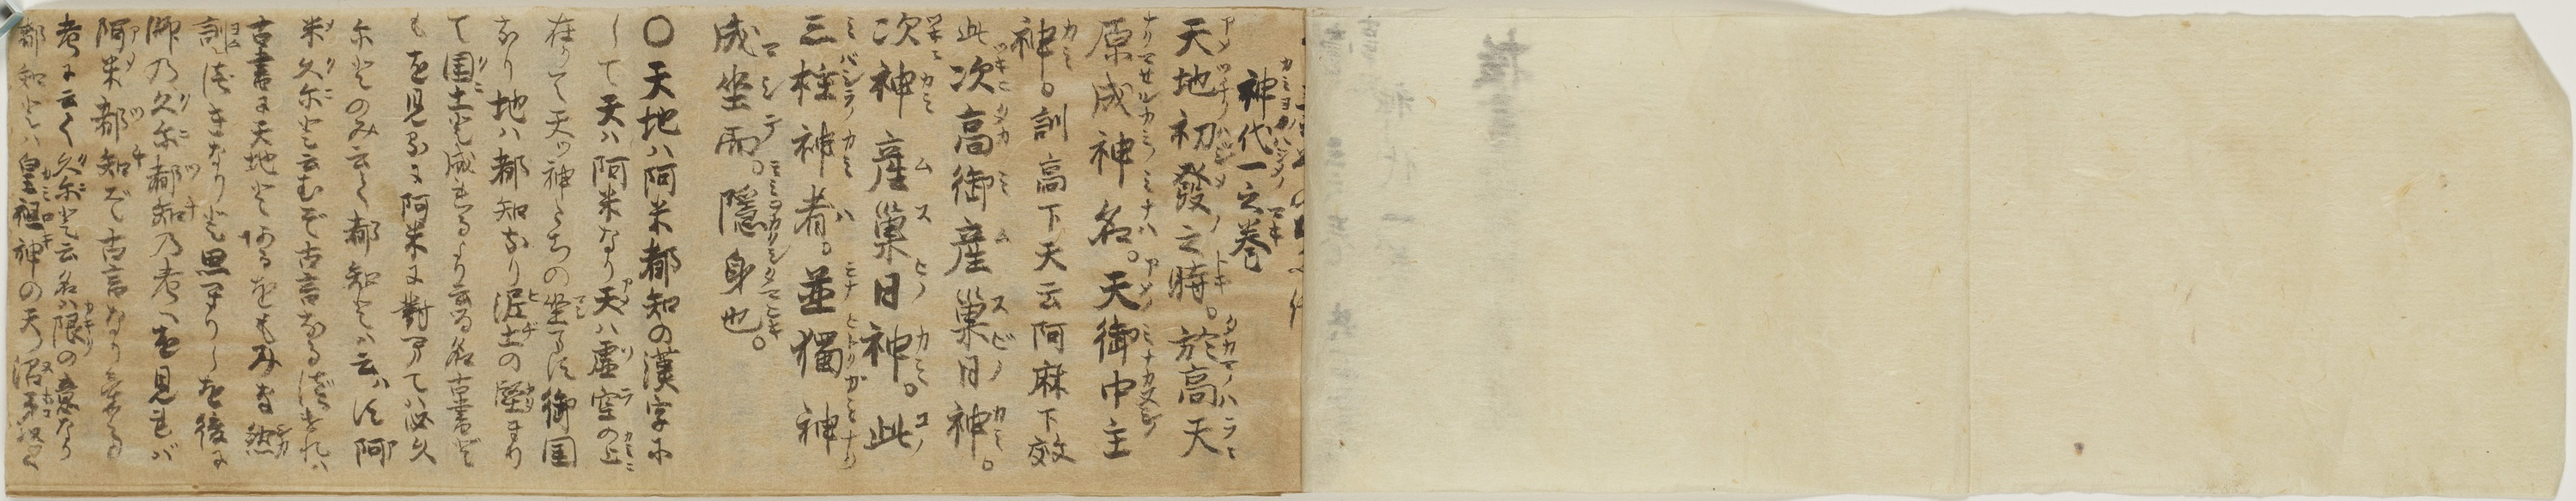 神代一之巻
天地初發之時。於高天
原成神名。天御中主
神。訓高下天云阿麻下效
此次高御産巣日神。
次神産巣日神。此
三柱神者。並獨神
成坐而。隱身也。
〇天地ハ阿米都知の漢字に
して天ハ阿米なり天ハ虚空の上に
在りて天ツ神たちの坐ます御国
なり地ハ都知なり泥土の堅まり
て国土と成れるより云る名古書ど
もを見るに阿米に對へてハ必久
尓とのみ云て都知とハ云ハず阿
米久尓と云むぞ古言なる然れハ
古書に天地とあるをもみな然
訓べきなりと思へりしを後に
師の久尓都知乃考を見れバ
阿米都知ぞ古言なりける
考に云く久尓と云名ハ限の意なり
都知とハ皇祖神の天の沼矛